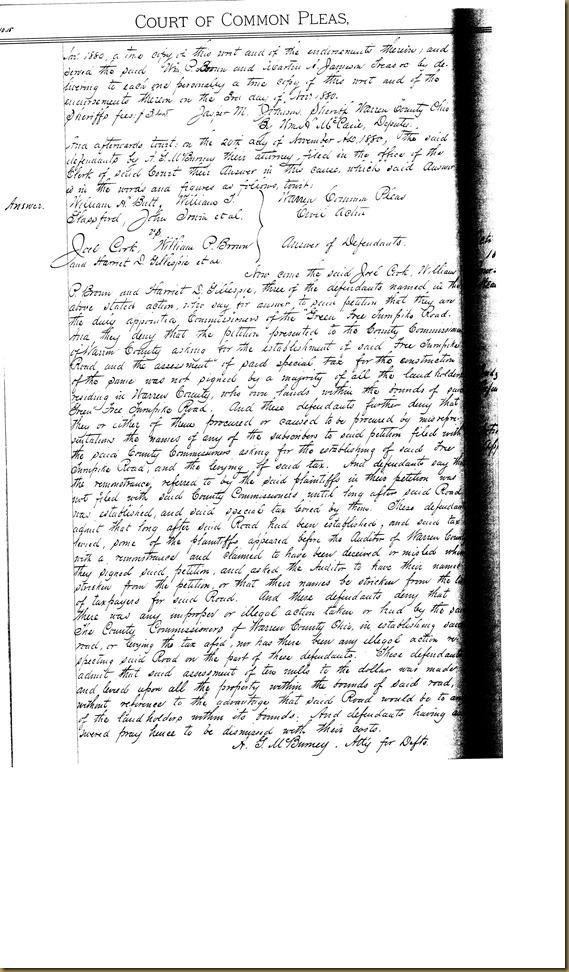 COURT OF COMMON PLEAS,
Nov. 1880, a true copy of this writ and of the endorsements thereon; and
served the said, Wm. P. Brown and Martin A. Jameson Treasr. by de-
livering to each one personally a true copy of this writ and of the
endorsements thereon on the 3rd day of Nov. 1880.
Sheriffs fees: $ Sheriff Warren County Ohio
By Wm. H. Deputy.
And afterwards towit: on the 20th day of November A.D. 1880, the said
defendants by A. G. McBurney their attorney, filed in the office of the
Clerk of said Court their Answer in this cause, which said Answer
is in the words and figures as follows, towit:
Answer.
William H. Butt, William T. Warren Common Pleas
John Irwin et al. Civil Action
vs.
José Cook, William P. Brown Answer of Defendants.
and Harriet D. Gillespie et al.
Now come the said José Cook, William
P. Brown and Harriet D. Gillespie, three of the defendants named in the
above stated action, who say for answer, to said petition that they are
the duly appointed Commissioners of the "Green Free Turnpike Road.
And they deny that the petition presented to the County Commissioners
of Warren County asking for the establishment of said Free Turnpike
Road, and the assessment of said special tax for the construction
of the same was not signed by a majority of all the land holders
residing in Warren County, who own lands within the bounds of said
Green Free Turnpike Road. And these defendants further deny that
they or either of them procured or caused to be procured by misrepre-
sentations the names of any of the subscribers to said petition filed with
the said County Commissioners asking for the establishing of said Free
Turnpike Road, and the levying of said tax. And defendants say that
the remonstrance, referred to by the said plaintiffs in their petition was
not filed with said County Commissioners, until long after said Road
was established, and said special tax levied by them. These defendants
admit that long after said Road had been established, and said tax
levied, some of the plaintiffs appeared before the Auditor of Warren County
with a remonstrance and claimed to have been deceived or misled when
they signed said petition, and asked the Auditor to have their names
stricken from the petition, or that their names be stricken from the list
of taxpayers for said Road. And these defendants deny that
there was any improper or illegal action taken or had by the said
The County Commissioners of Warren County Ohio, in establishing said
road, or levying the tax afsd, nor has there been any illegal action re-
specting said Road on the part of these defendants. These defendants
admit that said assessment of ten mills to the dollar was made
and levied upon all the property within the bounds of said road,
without reference to the advantage that said Road would be to any
of the land holders within its bounds: And defendants having an-
swered pray hence to be dismissed with their costs.
A. G. McBurney, Atty for Defts.